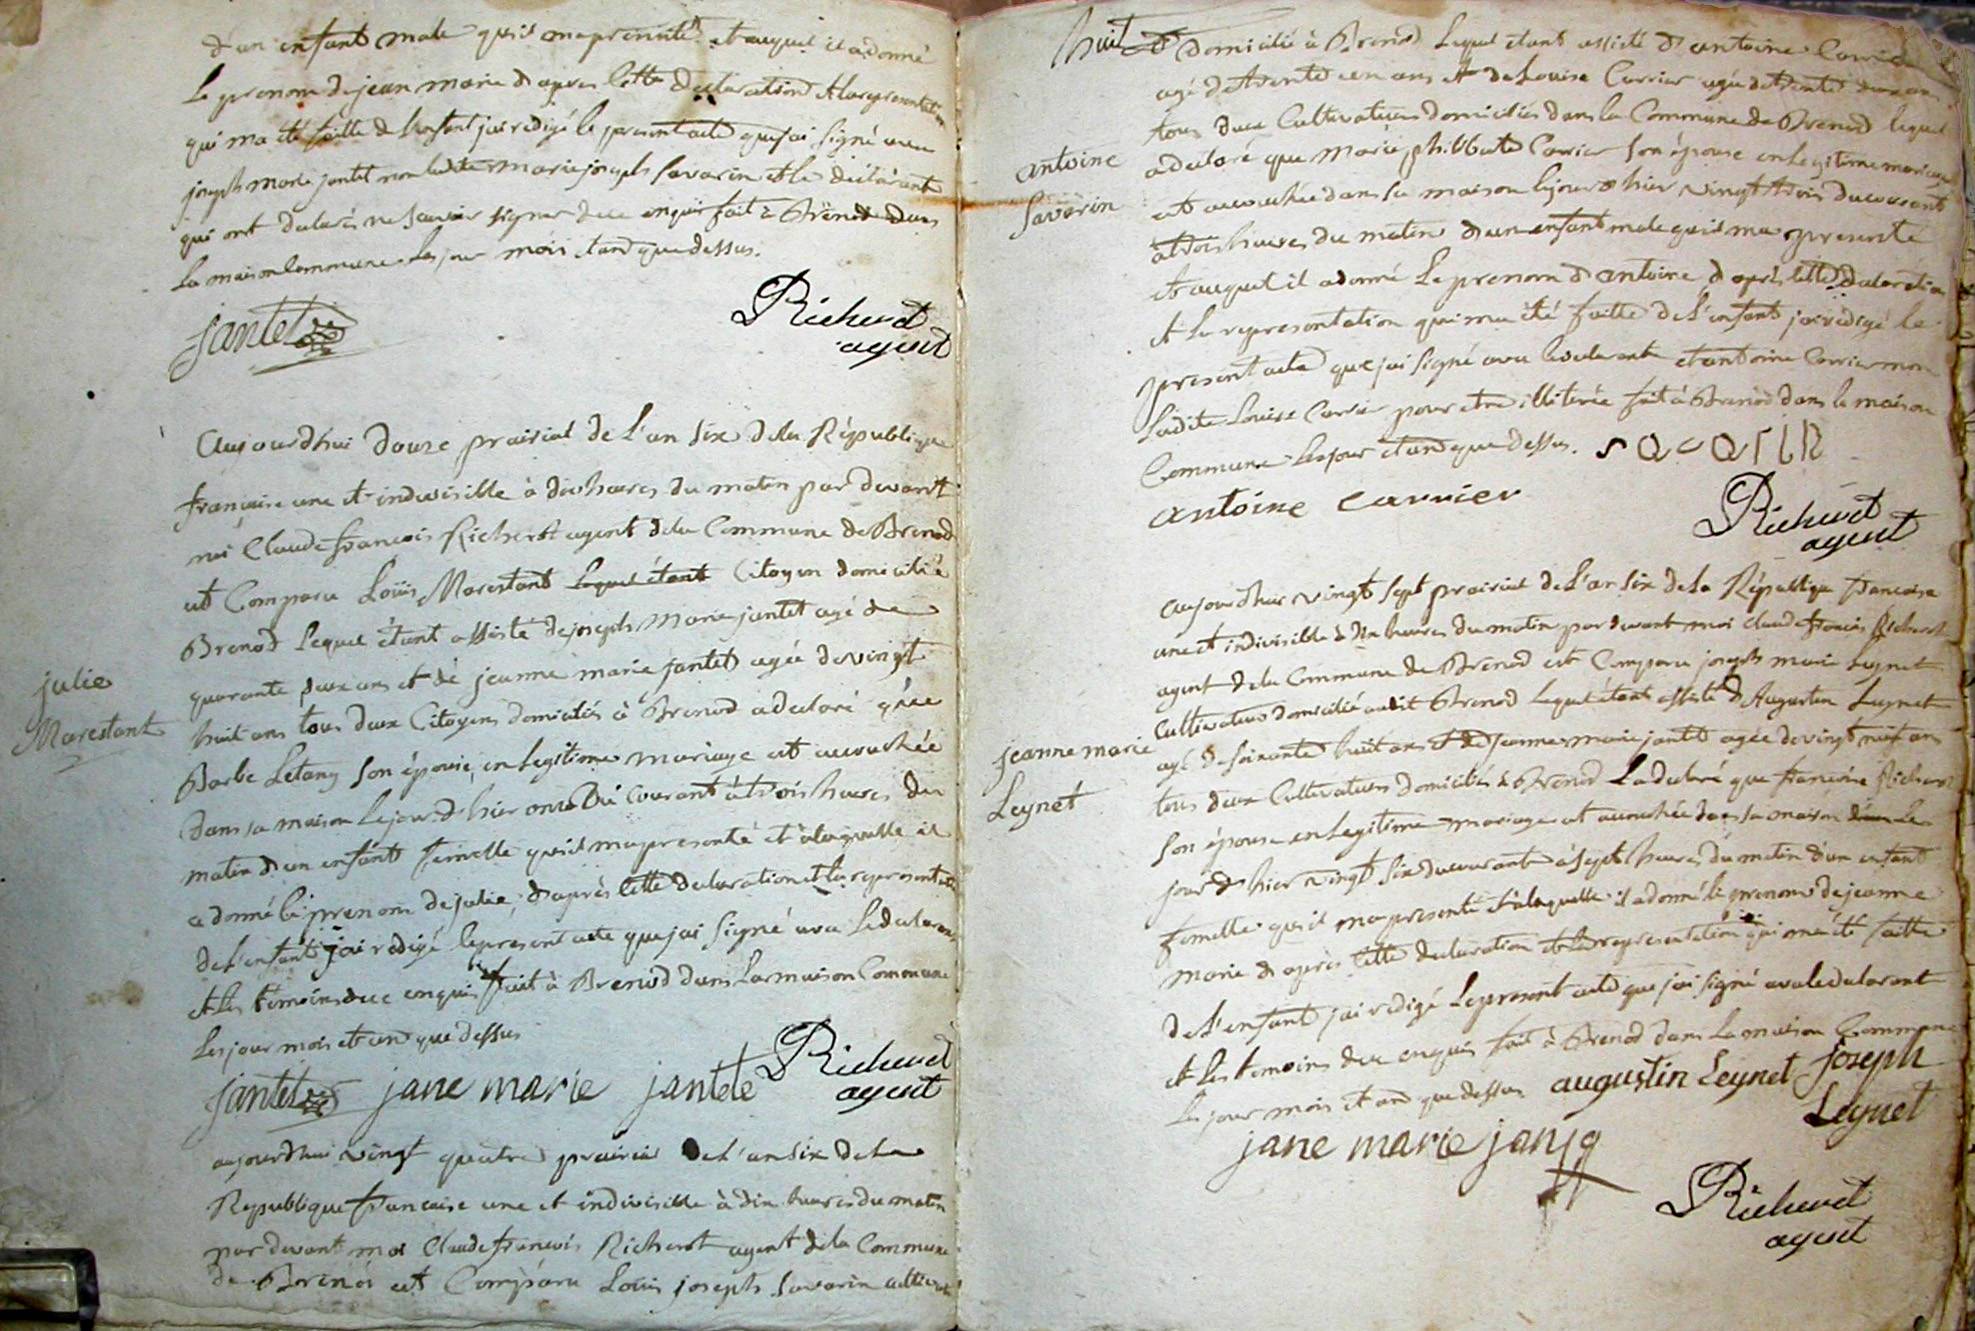 d'un enfant male quil ma presenté et auquel il a donné
Le prenom de jean marie d'apres cette declaration et la representation
qui ma eté faitte de l'enfant jai redigé le present acte que jai signé avec
joseph marie jantet non ladite marie joseph Savarin et le déclarant
qui ont declarés ne savoir signer de ce enquis fait à Brenod dans
La maison Commune les jour mois et an que dessus.
jantet
Richerot
agent
Aujourdhui douze prairial de L'an six de la République
françoise une et indivisible à dix heures du matin par devant
moi Claude françois Richerot agent de la Commune de Brenod
est Comparu Loüis Marestant Lequel étant Citoyen domicilié à
Brenod Lequel étant assisté de joseph Marie jantet agé de
quarante deux ans et de jeanne marie jantet agée de vingt
huit ans tous deux Citoyens domiciliés à Brenod a declaré que
julie
Marestant
Barbe Letang son épouse en legitime mariage est accouchée
Dans sa maison Le jour d'hier onze du courant à trois heures du
matin d'un enfant femelle quil ma presenté et à laquelle il
a donné le prenom de julie, d'après cette declaration et la representation
de L'enfant jai redigé le present acte que jai signé avec Le declarant
et Les temoins de ce enquis fait à Brenod dans La maison Commune
Les jour mois et an que dessus
jantet jane marie jantete Richerot
agent
aujourdhui vingt quatre prairial de L'an six de La
Republique francaise une et indivisible à dix heures du matin
par devant moi Claude francois Richerot agent de la Commune
de Brenod est Comparu Loüis joseph Savarin
huit domicilié à Brenod Lequel étant assisté d'antoine Carrier
agé de trente un ans et de Louise Carrier agée de trente deux ans
tous deux Cultivateurs domiciliés dans la Commune de Brenod lequel
antoine
Savarin
a declaré que Marie philiberte Carrier son épouse en Legitime mariage
est accouchée dans sa maison le jour d'hier vingt trois du courant
à trois heures du matin d'un enfant male quil ma presenté
et auquel il a donné Le prenom d'antoine d'après cette declaration
et La representation qui ma été faitte de L'enfant jai redigé le
present acte que jai signé avec le declarant et antoine Carrier non
Ladite Louise Carrier pour etre illiterée fait à Brenod dans la maison
Commune les jour et an que dessus. savarin
antoine carrier
Richerot
agent
aujourdhui vingt sept prairial de L'an six de La République francaise
une et indivisible à dix heures du matin par devant moi claude francois Richerot
agent de la Commune de Brenod est Comparu joseph marie Leynet
Cultivateur domicilié audit Brenod Lequel étant assisté d'Augustin Leynet
agé de soixante huit ans et de jeanne marie jantet agée de vingt huit ans
jeanne marie
Leynet
tous deux Cultivateurs domiciliés à Brenod La declaré que francoise Richerot
son épouse en Legitime mariage est accouchée dans sa maison Le
jour d'hier vingt six du courant à sept heures du matin d'un enfant
femelle qu'il ma presenté et à laquelle il a donné le prenom de jeanne
marie d'apres cette declaration et la representation qui ma été faitte
de L'enfant jai redigé Le present acte que jai signé avec le declarant
et Les temoins de ce enquis fait à Brenod dans La maison Commune
Les jour mois et an que dessus augustin Leynet joseph
Leynet
jane marie
Richerot
agent